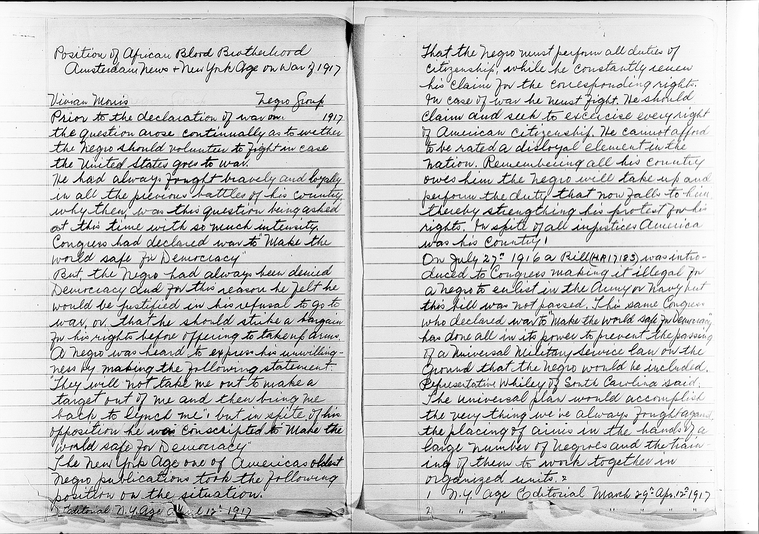 Position of African Blood Brotherhood
Amsterdam News + New York Age on War of 1917
Vivian Morris Negro Group
Prior to the declaration of war on 1917
the question arose continually as to wether
the Negro should volunteer to fight in case
the United States goes to war.
He had always fought bravely and loyally
in all the previous battles of his country
why then, was this question being asked
at this time with so much intensity.
Congress had declared war to "Make the
world safe for Democracy"
But, the Negro had always been denied
Democracy and for this reason he felt he
would be justified in his refusal to go to
war, or, that he should strike a bargain
for his rights before offering to take up arms.
A Negro was heard to express his unwilling-
ness by making the following statement.
"They will not take me out to make a
target out of me and then bring me
back to lynch me", but in spite of his
opposition he was conscripted to "Make the
world safe for Democracy"
The New York Age one of Americas oldest
Negro publications took the following
position on the situation.
Editorial N.Y. Age 12th 1917
That the Negro must perform all duties of
citizenship, while he constantly renew
his claim for the corresponding rights.
In case of war he must fight. He should
claim and seek to excercise every right
of American citizenship. He cannot afford
to be rated a disloyal element in the
nation. Remembering all his country
owes him the Negro will take up and
perform the duty that now falls to him
thereby strengthing his protest for his
rights. In spite of all injustices America
was his country!
On July 27th 1916 a Bill (HR 17183) was intro-
duced to Congress making it illegal for
a Negro to enlist in the Army or Navy but
this bill was not passed. This same Congress
who declared war to "Make the world safe for Democracy",
has done all in its power to prevent the passing
of a Universal Military Service law on the
ground that the Negro would be included.
Representative Whiley of South Carolina said.
The universal plan would accomplish
the very thing we've always fought against,
the placing of arms in the hands of a
large number of Negroes and the train-
ing of them to work together in
organized units. 2
1 N.Y. Age Editorial March 29th Apr. 12th 1917
2 " " " " " "